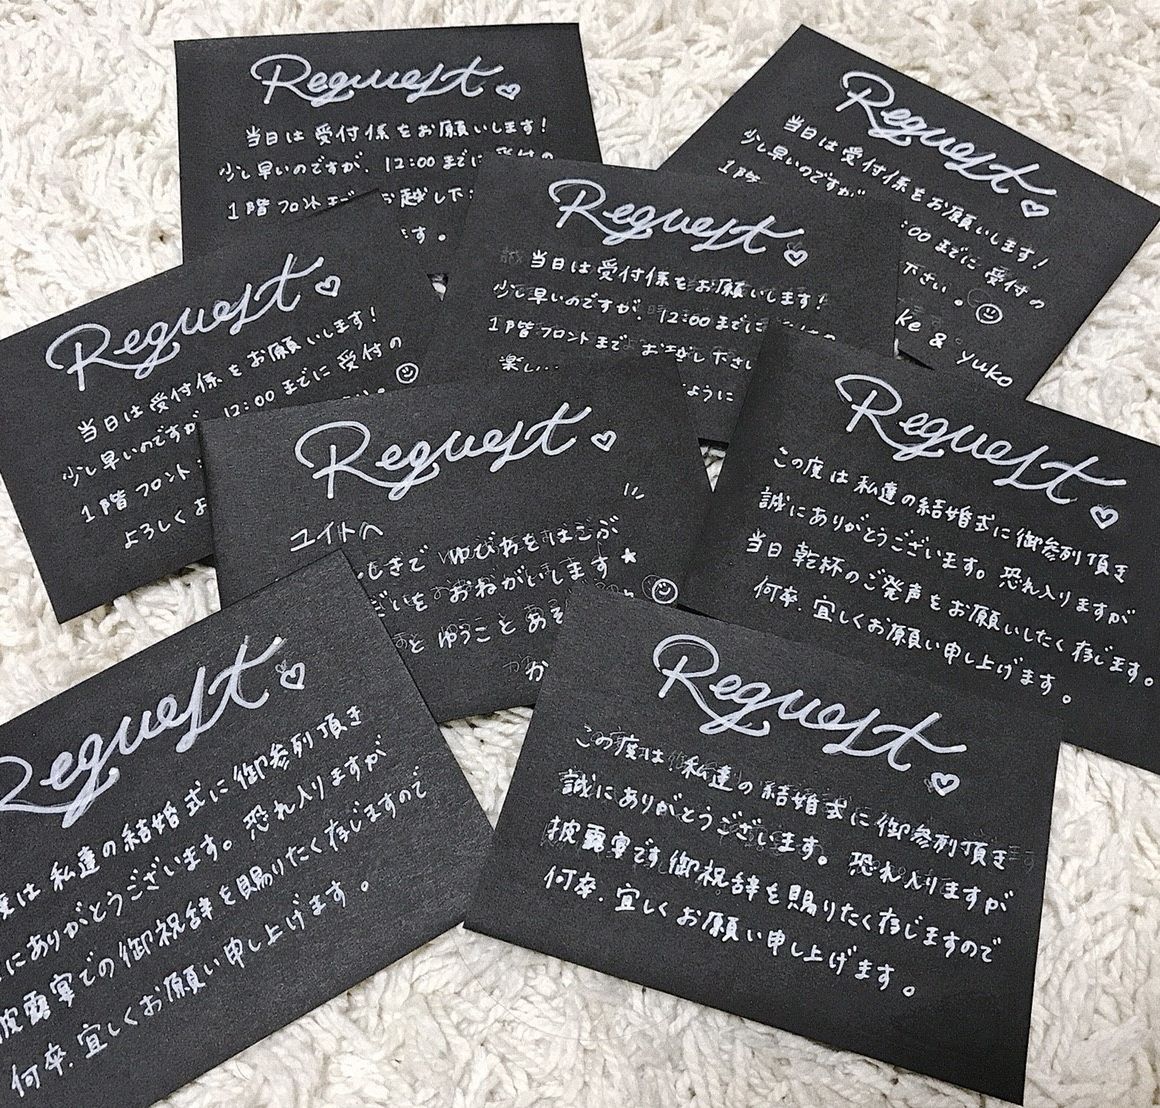 Request
当日は受付係をお願いします!
少し早いのですが、12:00までに受付の
1階フロントまで お越し下
す。
Request
当日は受付係をお願いします!
少し早いのですが :00までに受付の
1階 下さい。
ke & yuko
Request
当日は受付係をお願いします!
少し早いのですが、12:00までに
1階フロントまで お越し下さい
楽し...
ように
Request
当日は受付係をお願いします!
少し早いのですが 12:00までに受付の
1階フロント
よろしくお
Request
ユイトへ
しきで ゆびわをはこぶ
ごとを おねがいします
と ゆうこと あそ
か
Request
この度は私達の結婚式に御参列頂き
誠にありがとうございます。恐れ入りますが
当日 乾杯のご発声をお願いしたく存じます。
何卒、宜しくお願い申し上げます。
Request
度は私達の結婚式に御参列頂き
にありがとうございます。恐れ入りますが
披露宴での御祝辞を賜りたく存じますので
何卒、宜しくお願い申し上げます。
Request
この度は私達の結婚式に御参列頂き
誠にありがとうございます。恐れ入りますが
披露宴です御祝辞を賜りたく存じますので
何卒、宜しくお願い申し上げます。